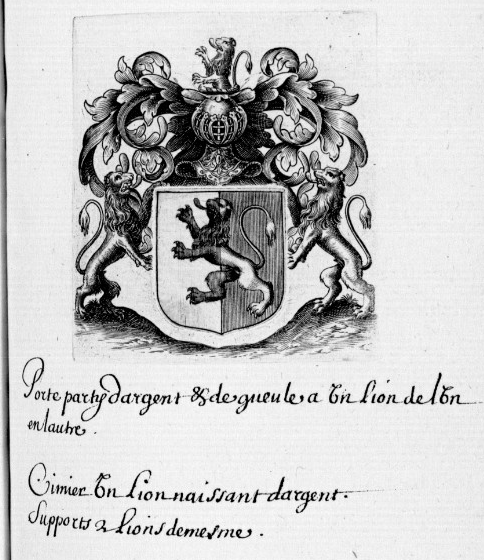 Porte party dargent & de gueule a Vn Lion de lVn
en lautre.
Cimier Vn Lion naissant dargent.
Supports 2 Lions demesme.